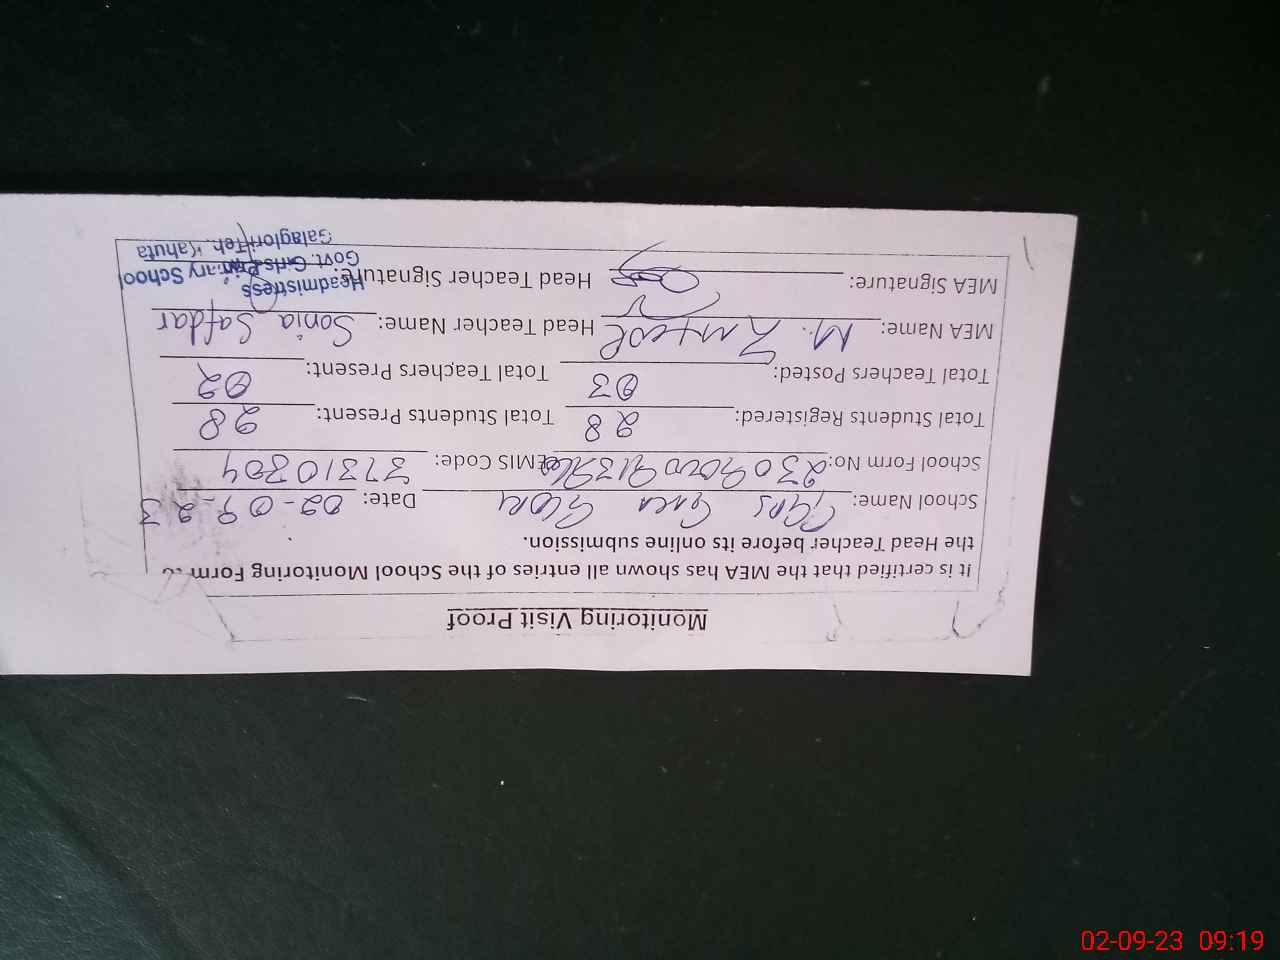 Monitoring Visit Proof
It is certified that the MEA has shown all entries of the School Monitoring Form to
the Head Teacher before its online submission.
School Name: GGPS Date: 02-09-23
School Form No: EMIS Code: 37310304
Total Students Registered: 28 Total Students Present: 28
Total Teachers Posted: 03 Total Teachers Present: 02
MEA Name: M. Head Teacher Name: Sonia Safdar
MEA Signature: Head Teacher Signature:
Headmistress
Govt. Girls Primary School
Galaglori Teh. Kahuta
02-09-23 09:19